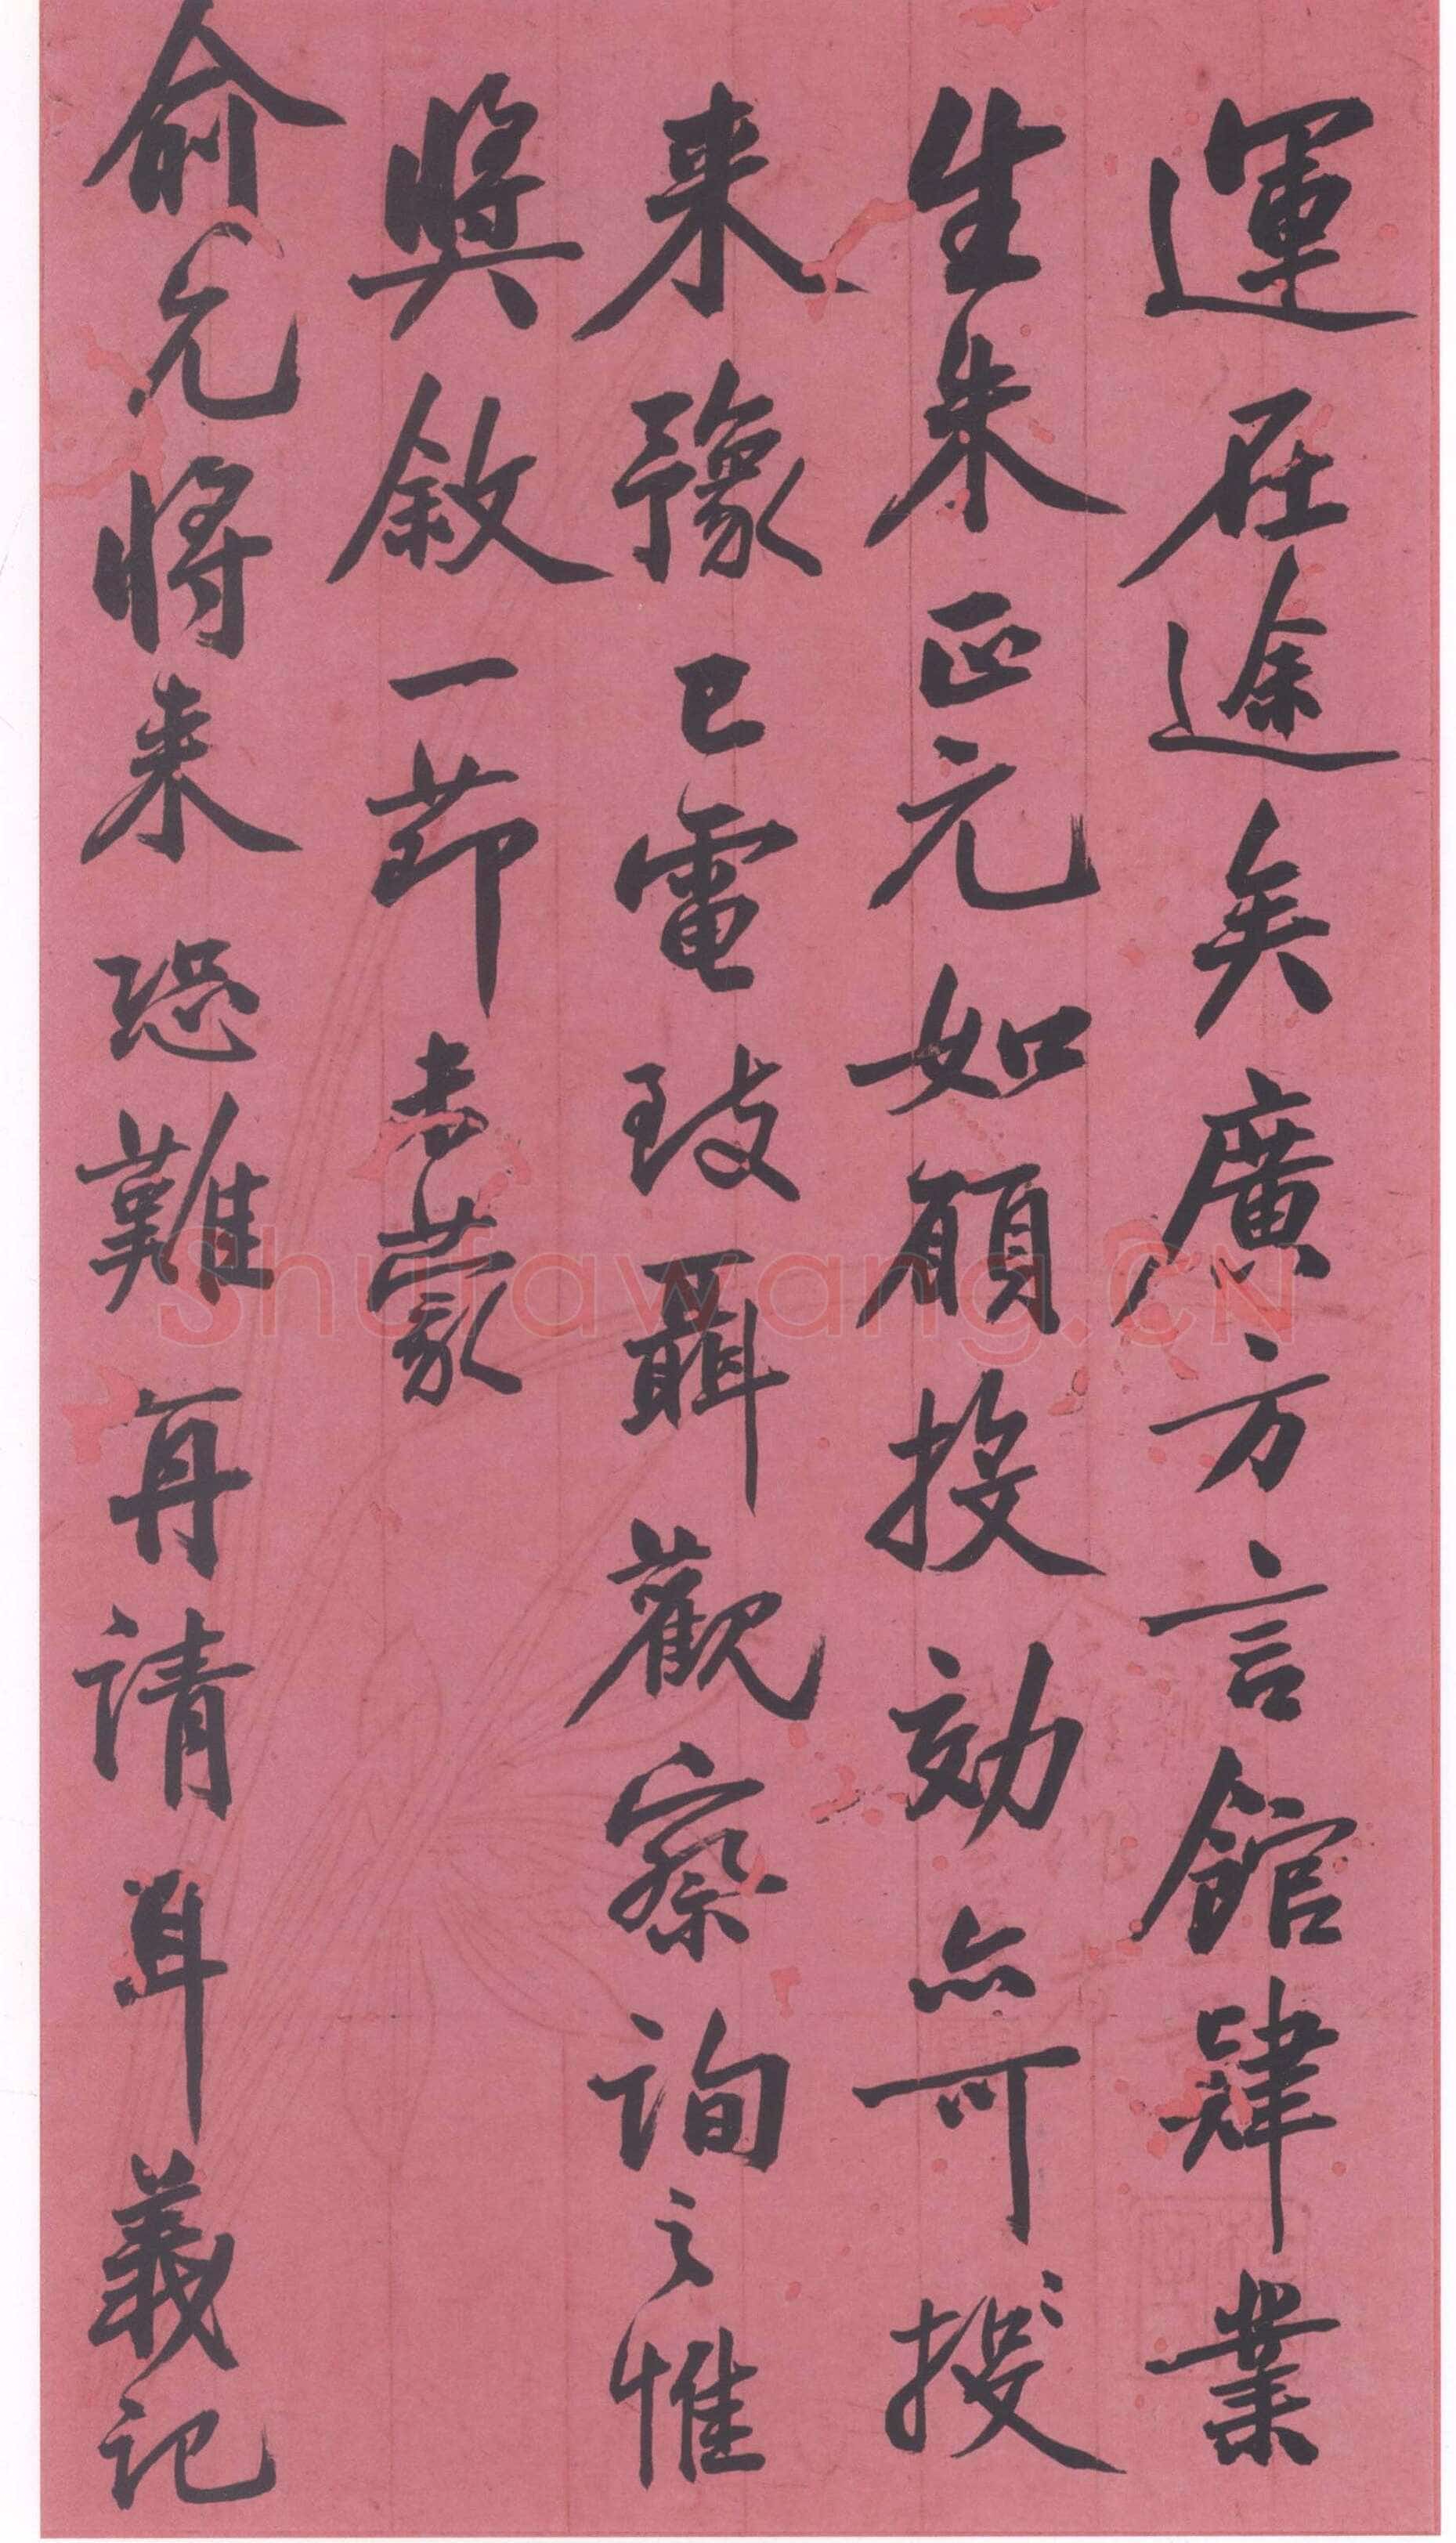 運在途矣廣方言館肄業
生朱正元如願投効亦可投
来豫已電致聶觀察詢之惟
獎敘一節未蒙
俞允將来恐難再請耳義記
shufawang.CN